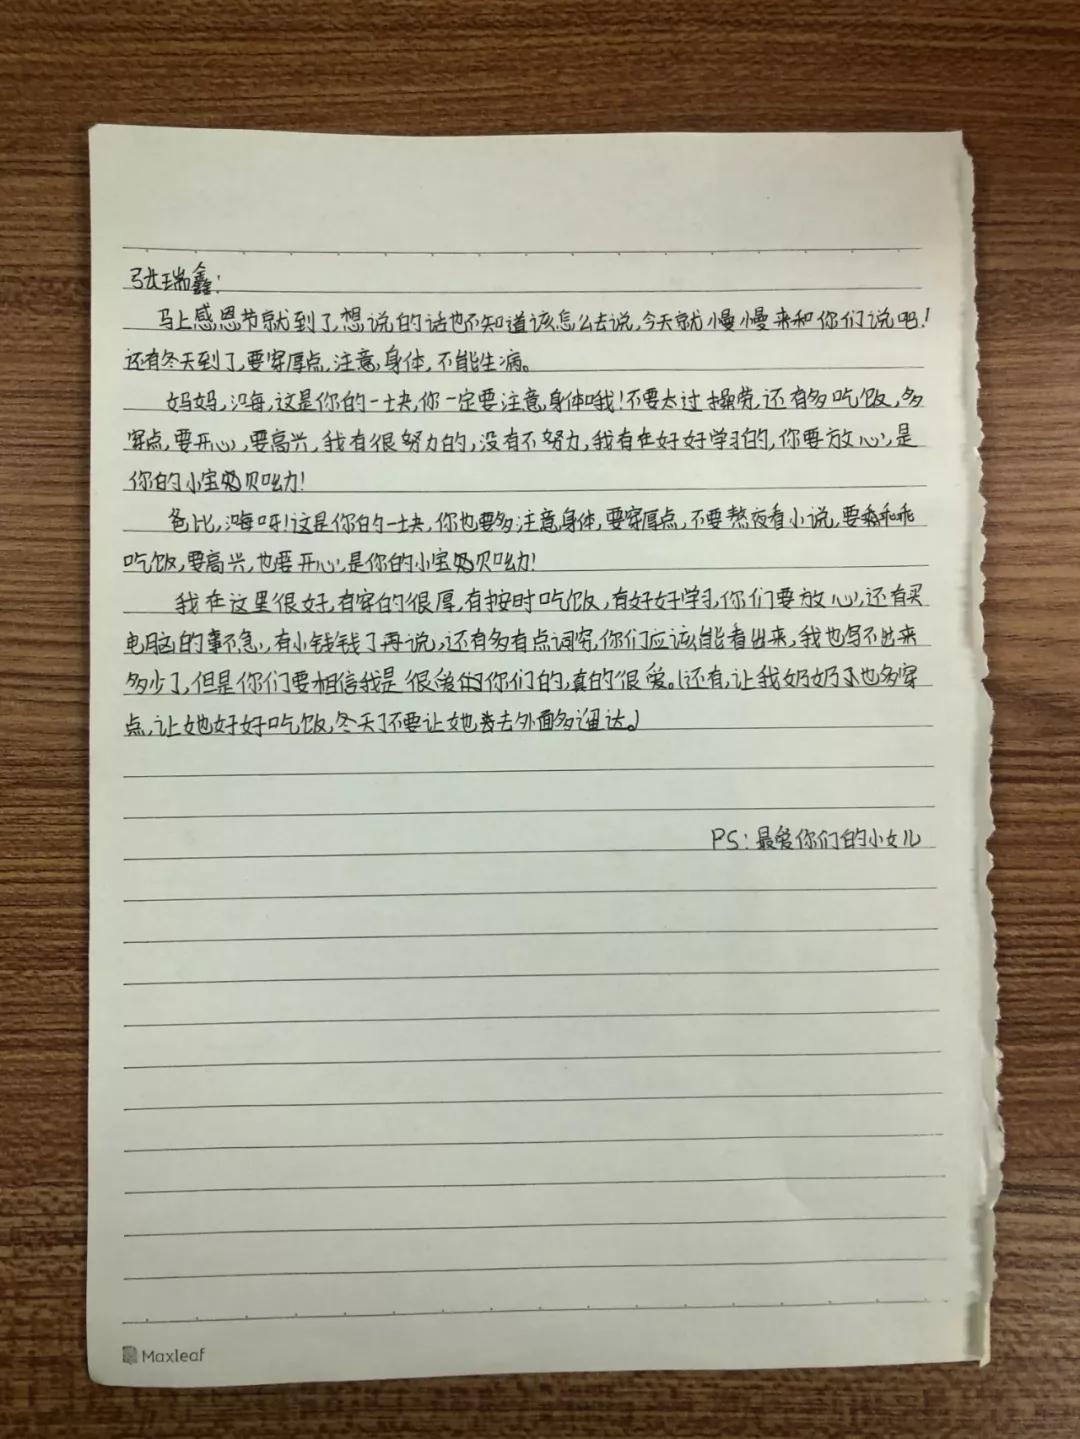 张瑞鑫:
马上感恩节就到了,想说的话也不知道该怎么去说,今天就慢慢来和你们说吧!
还有冬天到了,要穿厚点,注意身体,不能生病。
妈妈,海,这是你的一块,你一定要注意身体哦!不要太过操劳,还有多吃饭,多
穿点,要开心,要高兴,我有很努力的,没有不努力,我有在好好学习的,你要放心,是
你的小宝贝呦!
爸比,海呀!这是你的一块,你也要多注意身体,要穿厚点,不要熬夜看小说,要乖乖
吃饭,要高兴,也要开心,是你的小宝贝呦!
我在这里很好,有穿的很厚,有按时吃饭,有好好学习,你们要放心,还有买
电脑的事不急,有小钱钱了再说,还有多有点词穷,你们应该能看出来,我也写不出来
多少了,但是你们要相信我是很爱你们的,真的很爱。(还有,让我奶奶也多穿
点,让她好好吃饭,冬天了不要让她去外面多遛达。)
PS:最爱你们的小女儿
Maxleaf